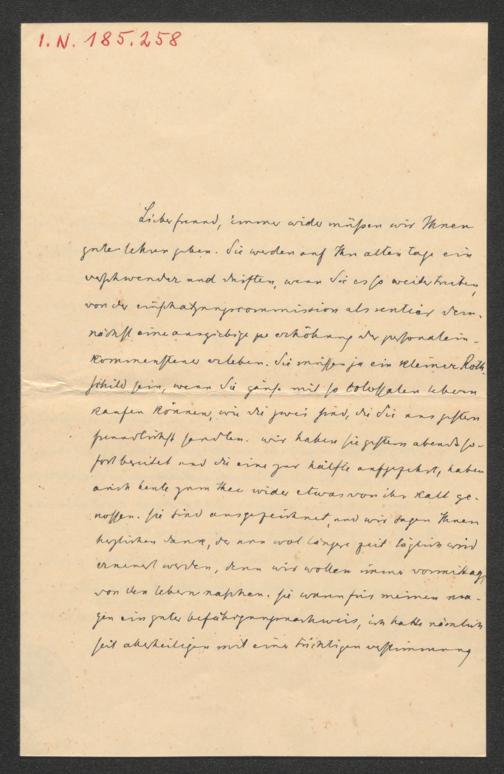 I. N. 185.258
Lieber freund, immer wider müssen wir Ihnen
gute lehren geben. Sie werden auf Ihr alten tage ein
verschwender und dürften, wenn Sie es so weiter treiben,
von der einschätzungscommission als rentier dem-
nächst eine ausgiebige erhöhung der personalein-
kommensteuer erleben. Sie müssen ja ein kleiner Roth-
schild sein, wenn Sie gänse mit so kolossalen lebern
kaufen können, wie die zwei sind, die Sie uns gestern
freundlichst sandten. wir haben sie gestern abends so-
fort bereitet und die eine zur hälfte aufgezehrt, haben
auch heute zum thee wider etwas von ihr kalt ge-
nossen. sie sind ausgezeichnet, und wir sagen Ihnen
herzlichen dank, der nun wol längere zeit täglich wird
erneuert werden, denn wir wollen immer vormittags
von den lebern naschen. sie waren für meinen ma-
gen ein guter befähigungsnachweis, ich hatte nämlich
seit allerheiligen mit einer tüchtigen verstimmung